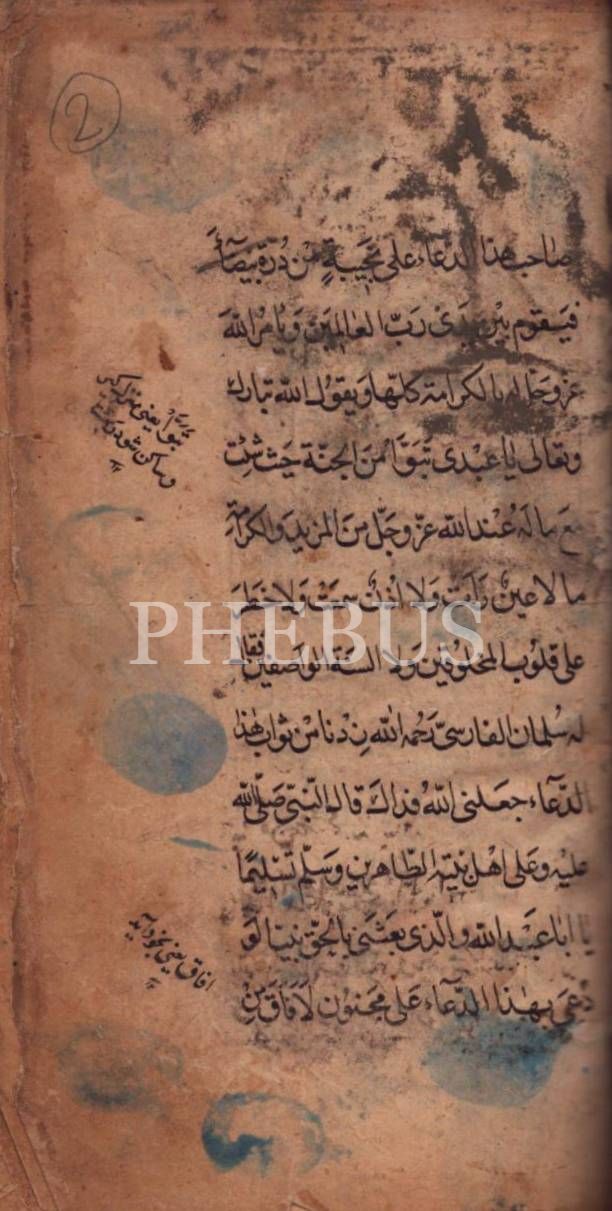 2
صاحب هذا الدعاء على نجيبة من درة بيضآء
فيقوم بين يدى ربّ العالمين ويامر الله
عز وجل له بالكرامة كلها ويقول الله تبارك
وتعالى يا عبدى تبوّأ من الجنة حيث شئت
مع ما له عند الله عزّ وجلّ من المزيد والكرامة
ما لا عينٌ رأت ولا اذنٌ سمعت ولا خطر
على قلوب المخلوقين ولا السنة الواصفين فقال
له سلمان الفارسىّ رحمه الله زدنا من ثواب هذا
الدّعآء جعلنى الله فداك قال النّبىّ صلّى الله
عليه وعلى اهل بيته الطّاهرين وسلّم تسليمًا
يا ابا عبد الله والّذى بعثنى بالحقّ نبيا لو
دُعى بهذا الدّعآء على مجنون لافاق من
تبوّأ يعنى
وساكن شو
افاق يعنى بخود آيد
PHEBUS